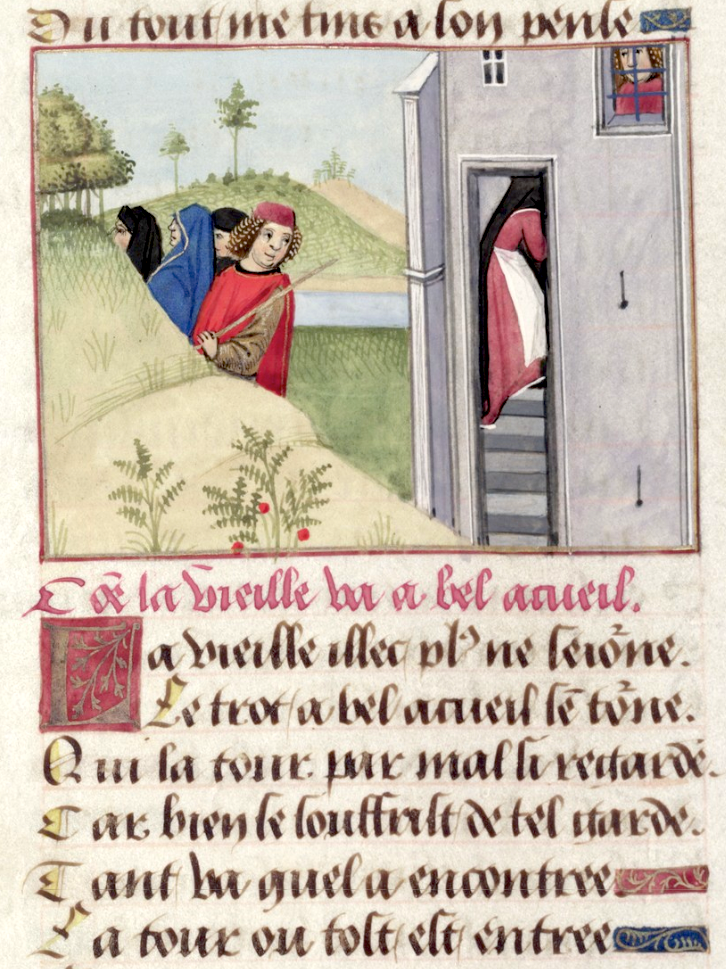 Du tout me tins a son pense
Cõe la vieille va a bel acueil.
La vieille illec plꝰ ne seiõne.
Le trot a bel acueil sẽ tõne.
Qui la tour par mal si regarde.
Car bien se souffrist de tel garde.
Tant va quel a encontree
La tour ou tost est entree